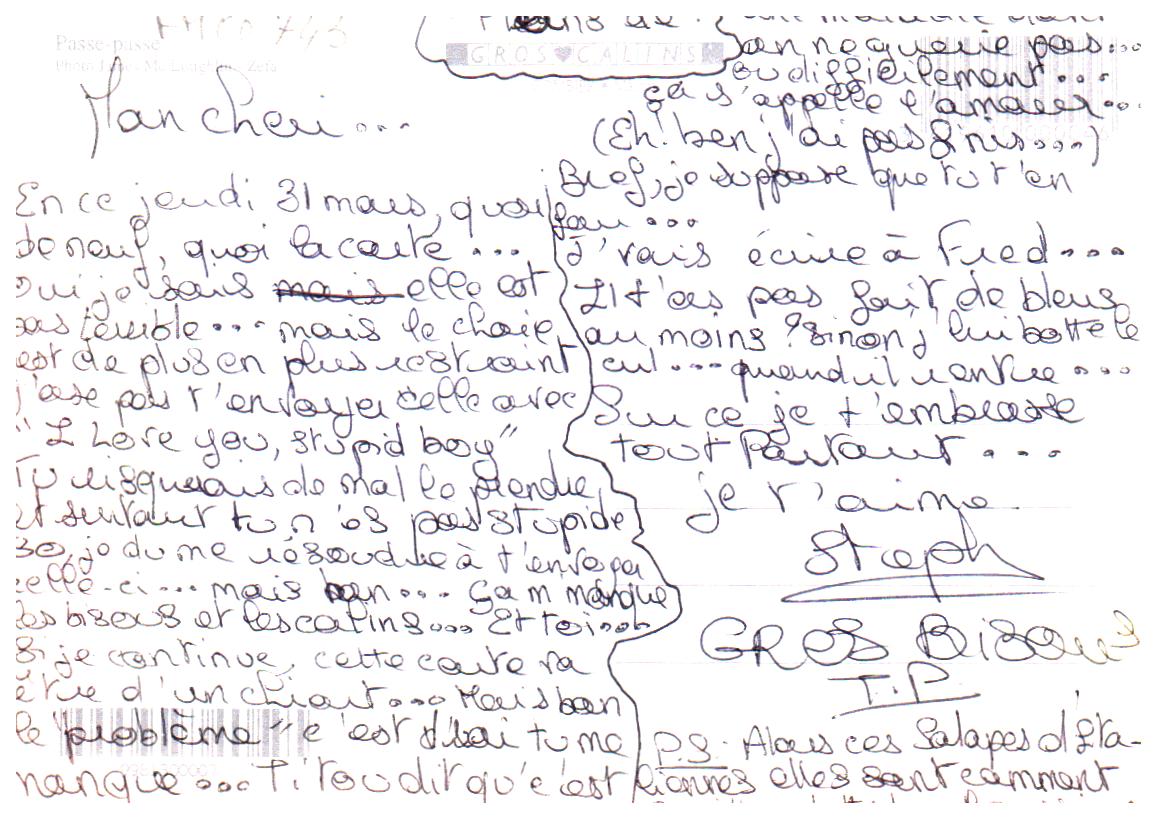 Passe-passe
GROS CALINS
Mon Cheri...
En ce jeudi 31 mars, quoi
de neuf, quoi la carte...
oui je sais mais elle est
pas terrible... mais le choix
est de plus en plus restraint
j'ose pas t'envoyer celle avec
"I Love you, stupid boy"
Tu risquerais de mal le prendre
et surtout tu n'es pas stupide
so, je du me résoudre à t'envoyer
celle-ci... mais bon... ça m manque
les bisous et les calins... Et toi...
si je continue, cette carte va
être d'un chiant... Mais bon
le "problème" c'est d'toi tu me
manque... Titou dit qu'c'est
Pleins de
une maladie dont
on ne guerie pas...
ou difficilement...
ça s'appelle l'amour...
(Eh! ben j'ai pas finis...)
Bref, je suppose que tu t'en
fou...
J'vais écrire à Fred...
Il t'as pas fait de bleus
au moins? Sinon j'lui botte le
cul... quand il rentre...
Sur ce je t'embrasse
tout Partout...
je t'aime
Steph
GROS BISOUS
T.P.
P.S: Alors ces Salopes d'Ita-
liennes elles sont comment